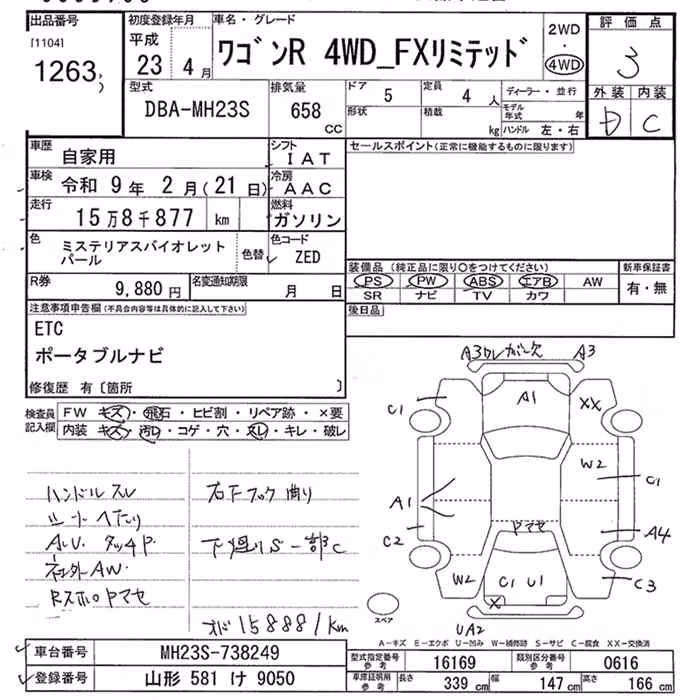 出品番号 初度登録年月 車名・グレード 2WD 評価点
[1104] 平成 ・
1263 23 4月 ワゴンR 4WD_FXリミテッド 4WD 3
型式 排気量 ドア 5 定員 4人 ディーラー・並行 外装 内装
DBA-MH23S 658 CC 形状 積載 kg モデル年式 年 D C
ハンドル 左・右
車歴 自家用 シフト IAT セールスポイント(正常に機能するものに限ります)
車検 令和 9年 2月(21日) 冷房 AAC
走行 15万8千877 km 燃料 ガソリン
色 ミステリアスバイオレット 色替 色コード
パール ZED
装備品 (純正品に限り○をつけてください) 新車保証書
R券 9,880円 名変通知期限 月 日 PS PW ABS エアB AW 有・無
SR ナビ TV カワ
注意事項申告欄(不具合内容等は具体的に記入して下さい) 後日品
ETC
ポータブルナビ
修復歴 有〔箇所 〕
検査員 FW キズ・飛石・ヒビ割・リペア跡・×要
記入欄 内装 キズ・汚レ・コゲ・穴・スレ・キレ・破レ
A3 ワレ ガリ欠 A3
C1 A1 XX
W2 C1
A1
C2 ヤマセ A4
W2 C1 U1 C3
X
UA2
スペア
ハンドルスレ 右下フック曲り
シートヘタリ
A.U.タッチP 下廻りS一部C
社外AW
Rスホロヤマセ
オド158881km
A-キズ E-エクボ U-凹み W-補修跡 S-サビ C-腐食 XX-交換済
車台番号 MH23S-738249 型式指定番号 参考 16169 類別区分番号 参考 0616
登録番号 山形 581 け 9050 車庫証明用 参考 長さ 339 cm 幅 147 cm 高さ 166 cm